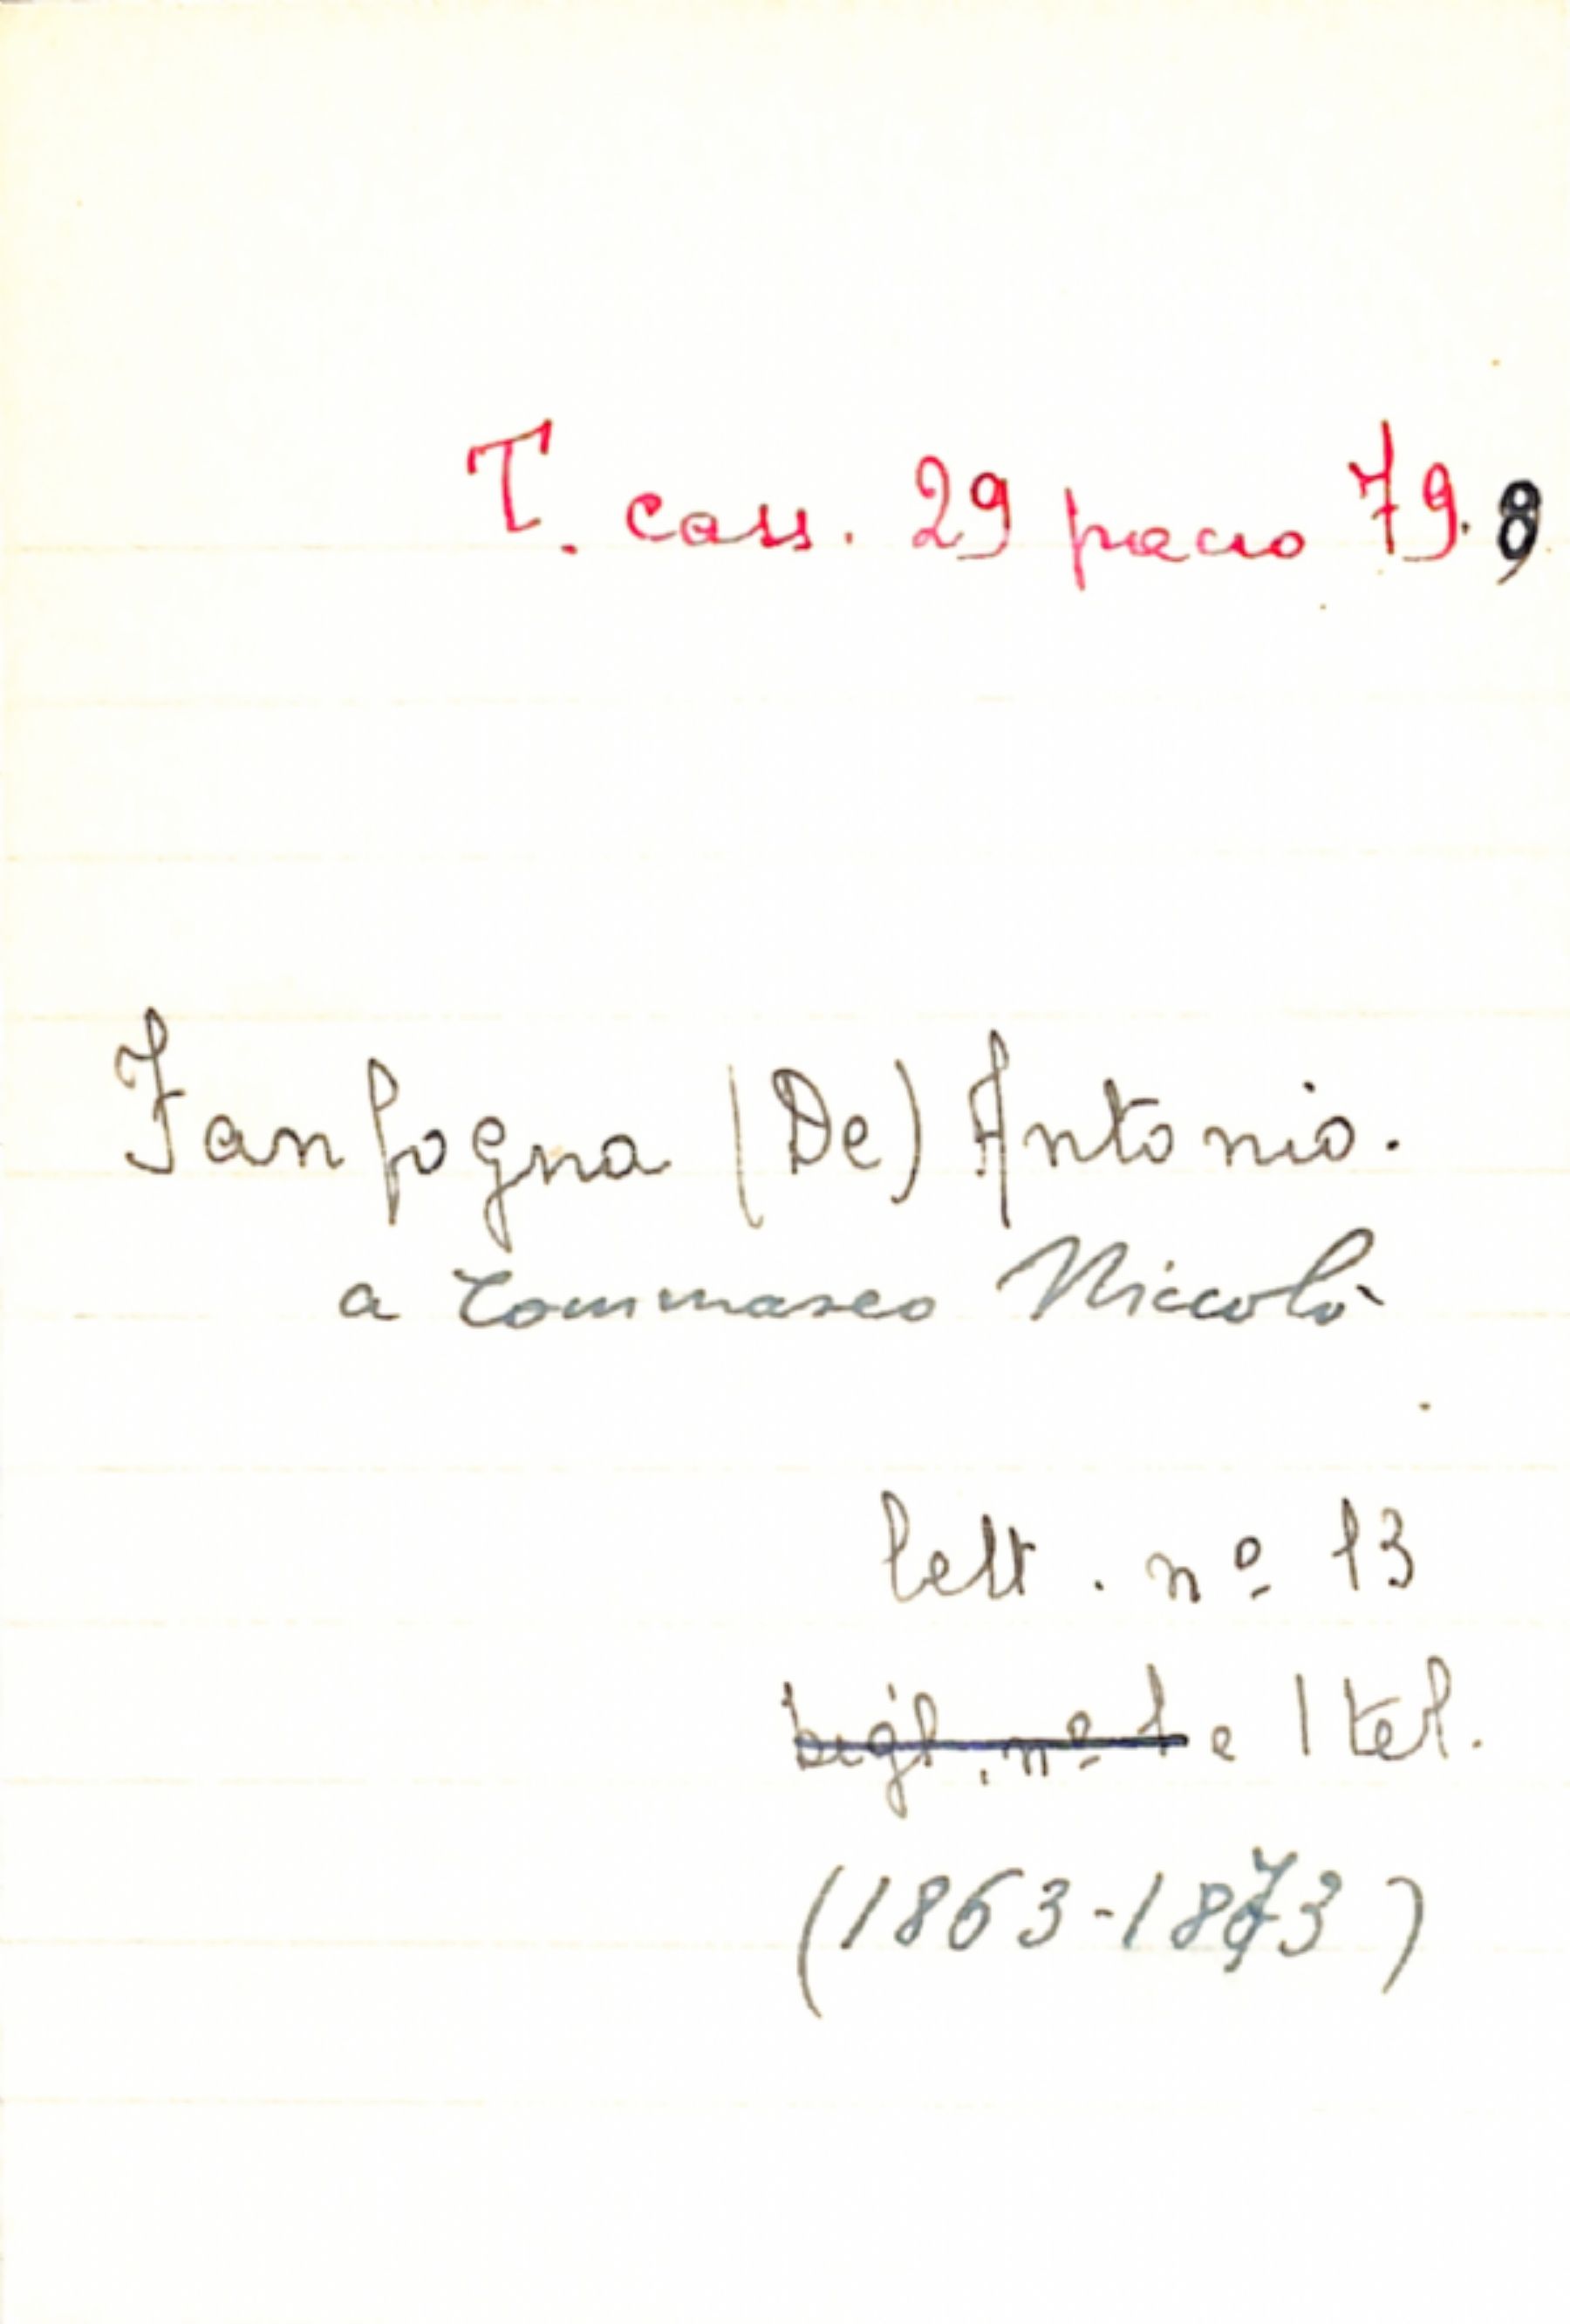 T. cass. 29 pacco 79. 8
Fanfogna (De) Antonio.
a Tommaseo Niccolò
lett. nº 13
bigl. nº 1 e 1 tel.
(1863-1873)